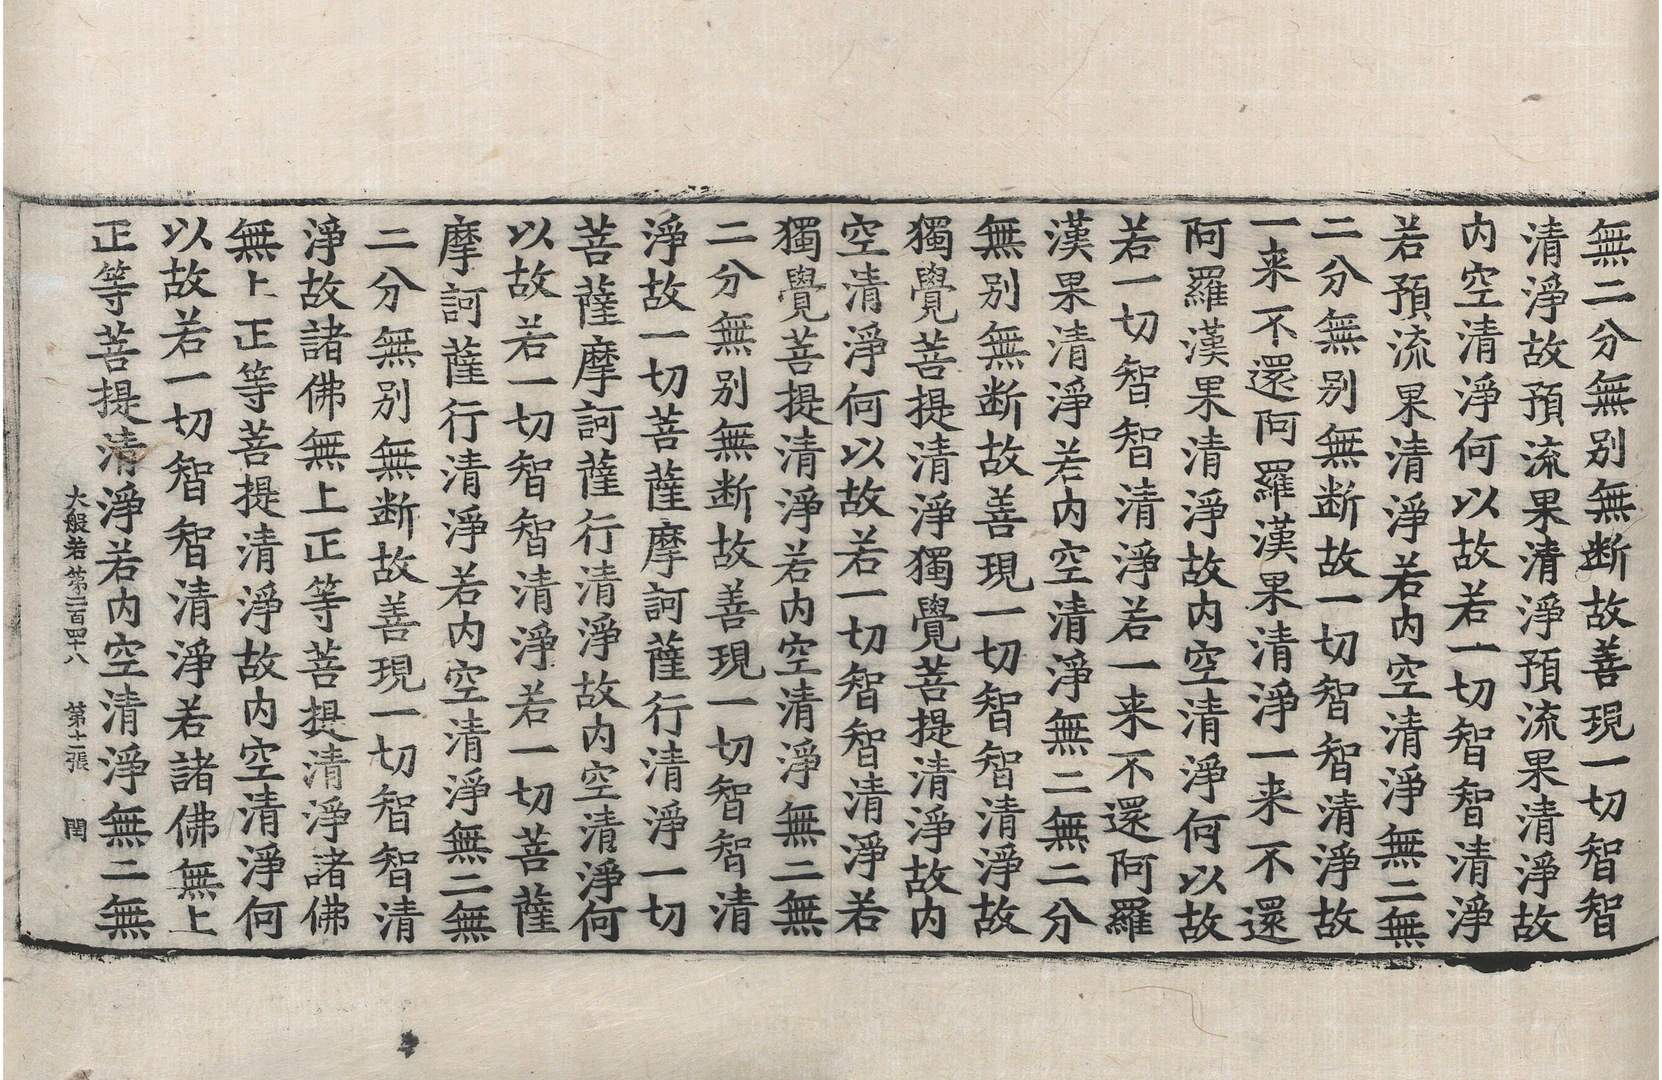 無二分無別無断故善現一切智智
清淨故預流果清淨預流果清淨故
内空清淨何以故若一切智智清淨
若預流果清淨若内空清淨無二無
二分無别無断故一切智智清淨故
一来不還阿羅漢果清淨一来不還
阿羅漢果清淨故内空清淨何以故
若一切智智清淨若一来不還阿羅
漢果清淨若内空清淨無二無二分
無别無断故善現一切智智清淨故
獨覺菩提清淨獨覺菩提清淨故内
空清淨何以故若一切智智清淨若
獨覺菩提清淨若内空清淨無二無
二分無别無断故善現一切智智清
淨故一切菩薩摩訶薩行清淨一切
菩薩摩訶薩行清淨故内空清淨何
以故若一切智智清淨若一切菩薩
摩訶薩行清淨若内空清淨無二無
二分無别無断故善現一切智智清
淨故諸佛無上正等菩提清淨諸佛
無上正等菩提清淨故内空清淨何
以故若一切智智清淨若諸佛無上
正等菩提清淨若内空清淨無二無
大般若第二百四十八 第十二張 閏